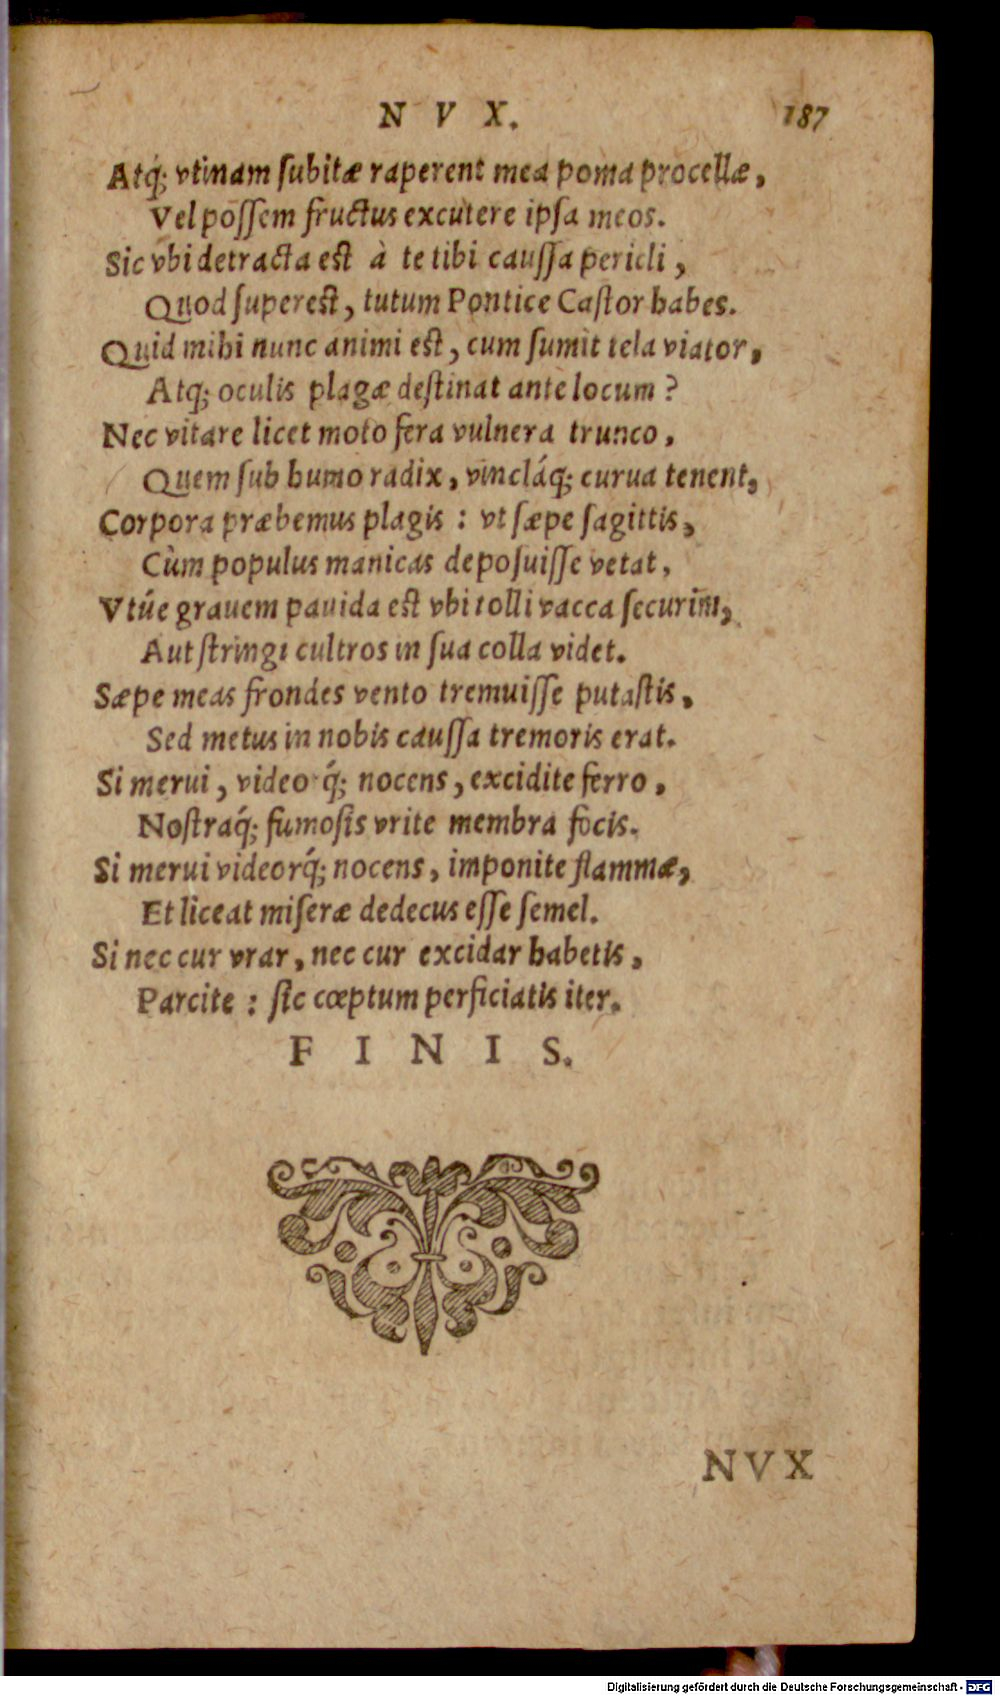 N V X. 187
Atq́; vtinam ſubitæ raperent mea poma procellæ,
Vel poſſem fructus excutere ipſa meos.
Sic vbi detracta est à te tibi cauſſa pericli,
Quod ſuperest, tutum Pontice Caſtor habes.
Quid mihi nunc animi est, cum ſumit tela viator,
Atq; oculis plagæ deſtinat ante locum?
Nec vitare licet moto fera vulnera trunco,
Quem ſub humo radix, vincláq; curua tenent,
Corpora præbemus plagis: vt ſæpe ſagittis,
Cùm populus manicas depoſuiſſe vetat,
Vtúe grauem pauida est vbi tolli vacca ſecurim̃,
Aut ſtringi cultros in ſua colla videt.
Sæpe meas frondes vento tremuiſſe putaſtis,
Sed metus in nobis cauſſa tremoris erat.
Si merui, video q́; nocens, excidite ferro,
Noſtraq́; fumoſis vrite membra focis.
Si merui videorq́; nocens, imponite flammæ,
Et liceat miſeræ dedecus eſſe ſemel.
Si nec cur vrar, nec cur excidar habetis,
Parcite: ſic cœptum perficiatis iter.
F I N I S.
NVX
Digitalisierung gefördert durch die Deutsche Forschungsgemeinschaft - DFG